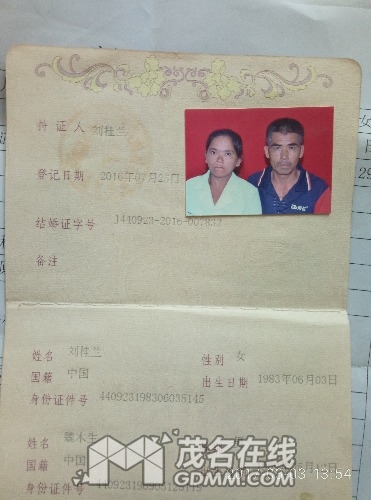 持证人 刘桂兰
登记日期 2016年07月25日
结婚证字号 J440923-2016-007837
备注
姓名 刘桂兰 性别 女
国籍 中国 出生日期 1983年06月03日
身份证件号 440923198306035145
姓名 魏木生
国籍 中国
身份证件号
茂名在线
GDMM.COM